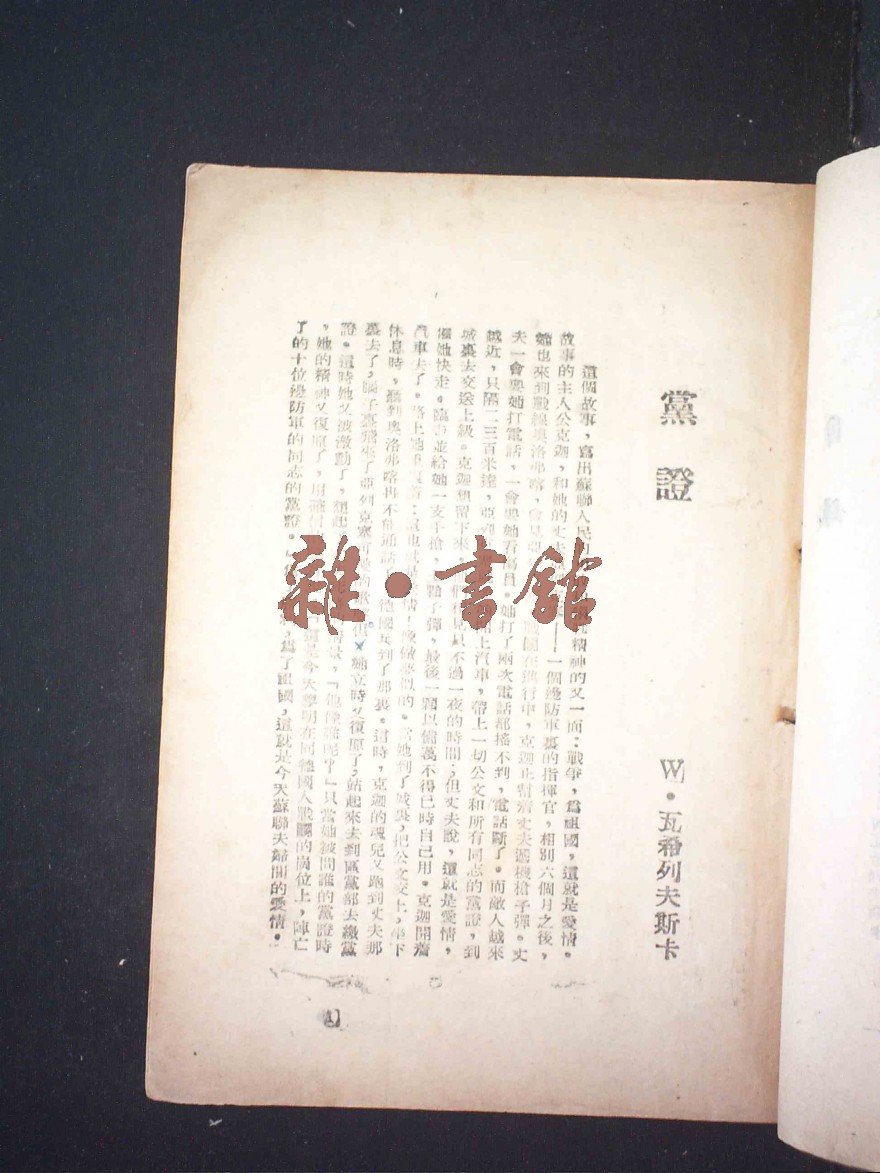 黨證
W·瓦希列夫斯卡
這個故事，寫出蘇聯人民精神的又一面：戰爭，爲祖國，這就是愛情。
故事的主人公克迦，和她的丈夫——一個邊防軍裏的指揮官，相別六個月之後，
她也來到戰線奧洛弗喀，會見在進行中，克迦止幫着丈夫遞機槍子彈。丈
夫一會要她打電話，一會要她看傷員。她打了兩次電話都搖不到，電話斷了。而敵人越來
越近，只隔二三百米達，上汽車，帶上一切公文和所有同志的黨證，到
城裏去交送上級。克迦想留下來，見只不過一夜的時間，但丈夫說，這就是愛情，
催她快走。臨走並給她一支手槍，顆子彈，最後一顆以備萬不得已時自己用。克迦開着
汽車去了。路上她像做夢似的。當她到了城裏，把公文交上，坐下
休息時，聽到奧洛弗喀再不能通話，德國兵到了那裏。這時，克迦的魂兒又跑到丈夫那
裏去了，腦子裏飛來了亞列克塞她立時又復原了，站起來去到區黨部去繳黨
證。這時她又被激動了，想起情景，『他像誰呢？』只當她被問誰的黨證時
，她的精神又復原了，用這是今天黎明在同德國人戰鬭的崗位上，陣亡
了的十位邊防軍的同志的黨證。爲了祖國，這就是今天蘇聯夫婦間的愛情。
雜·書館